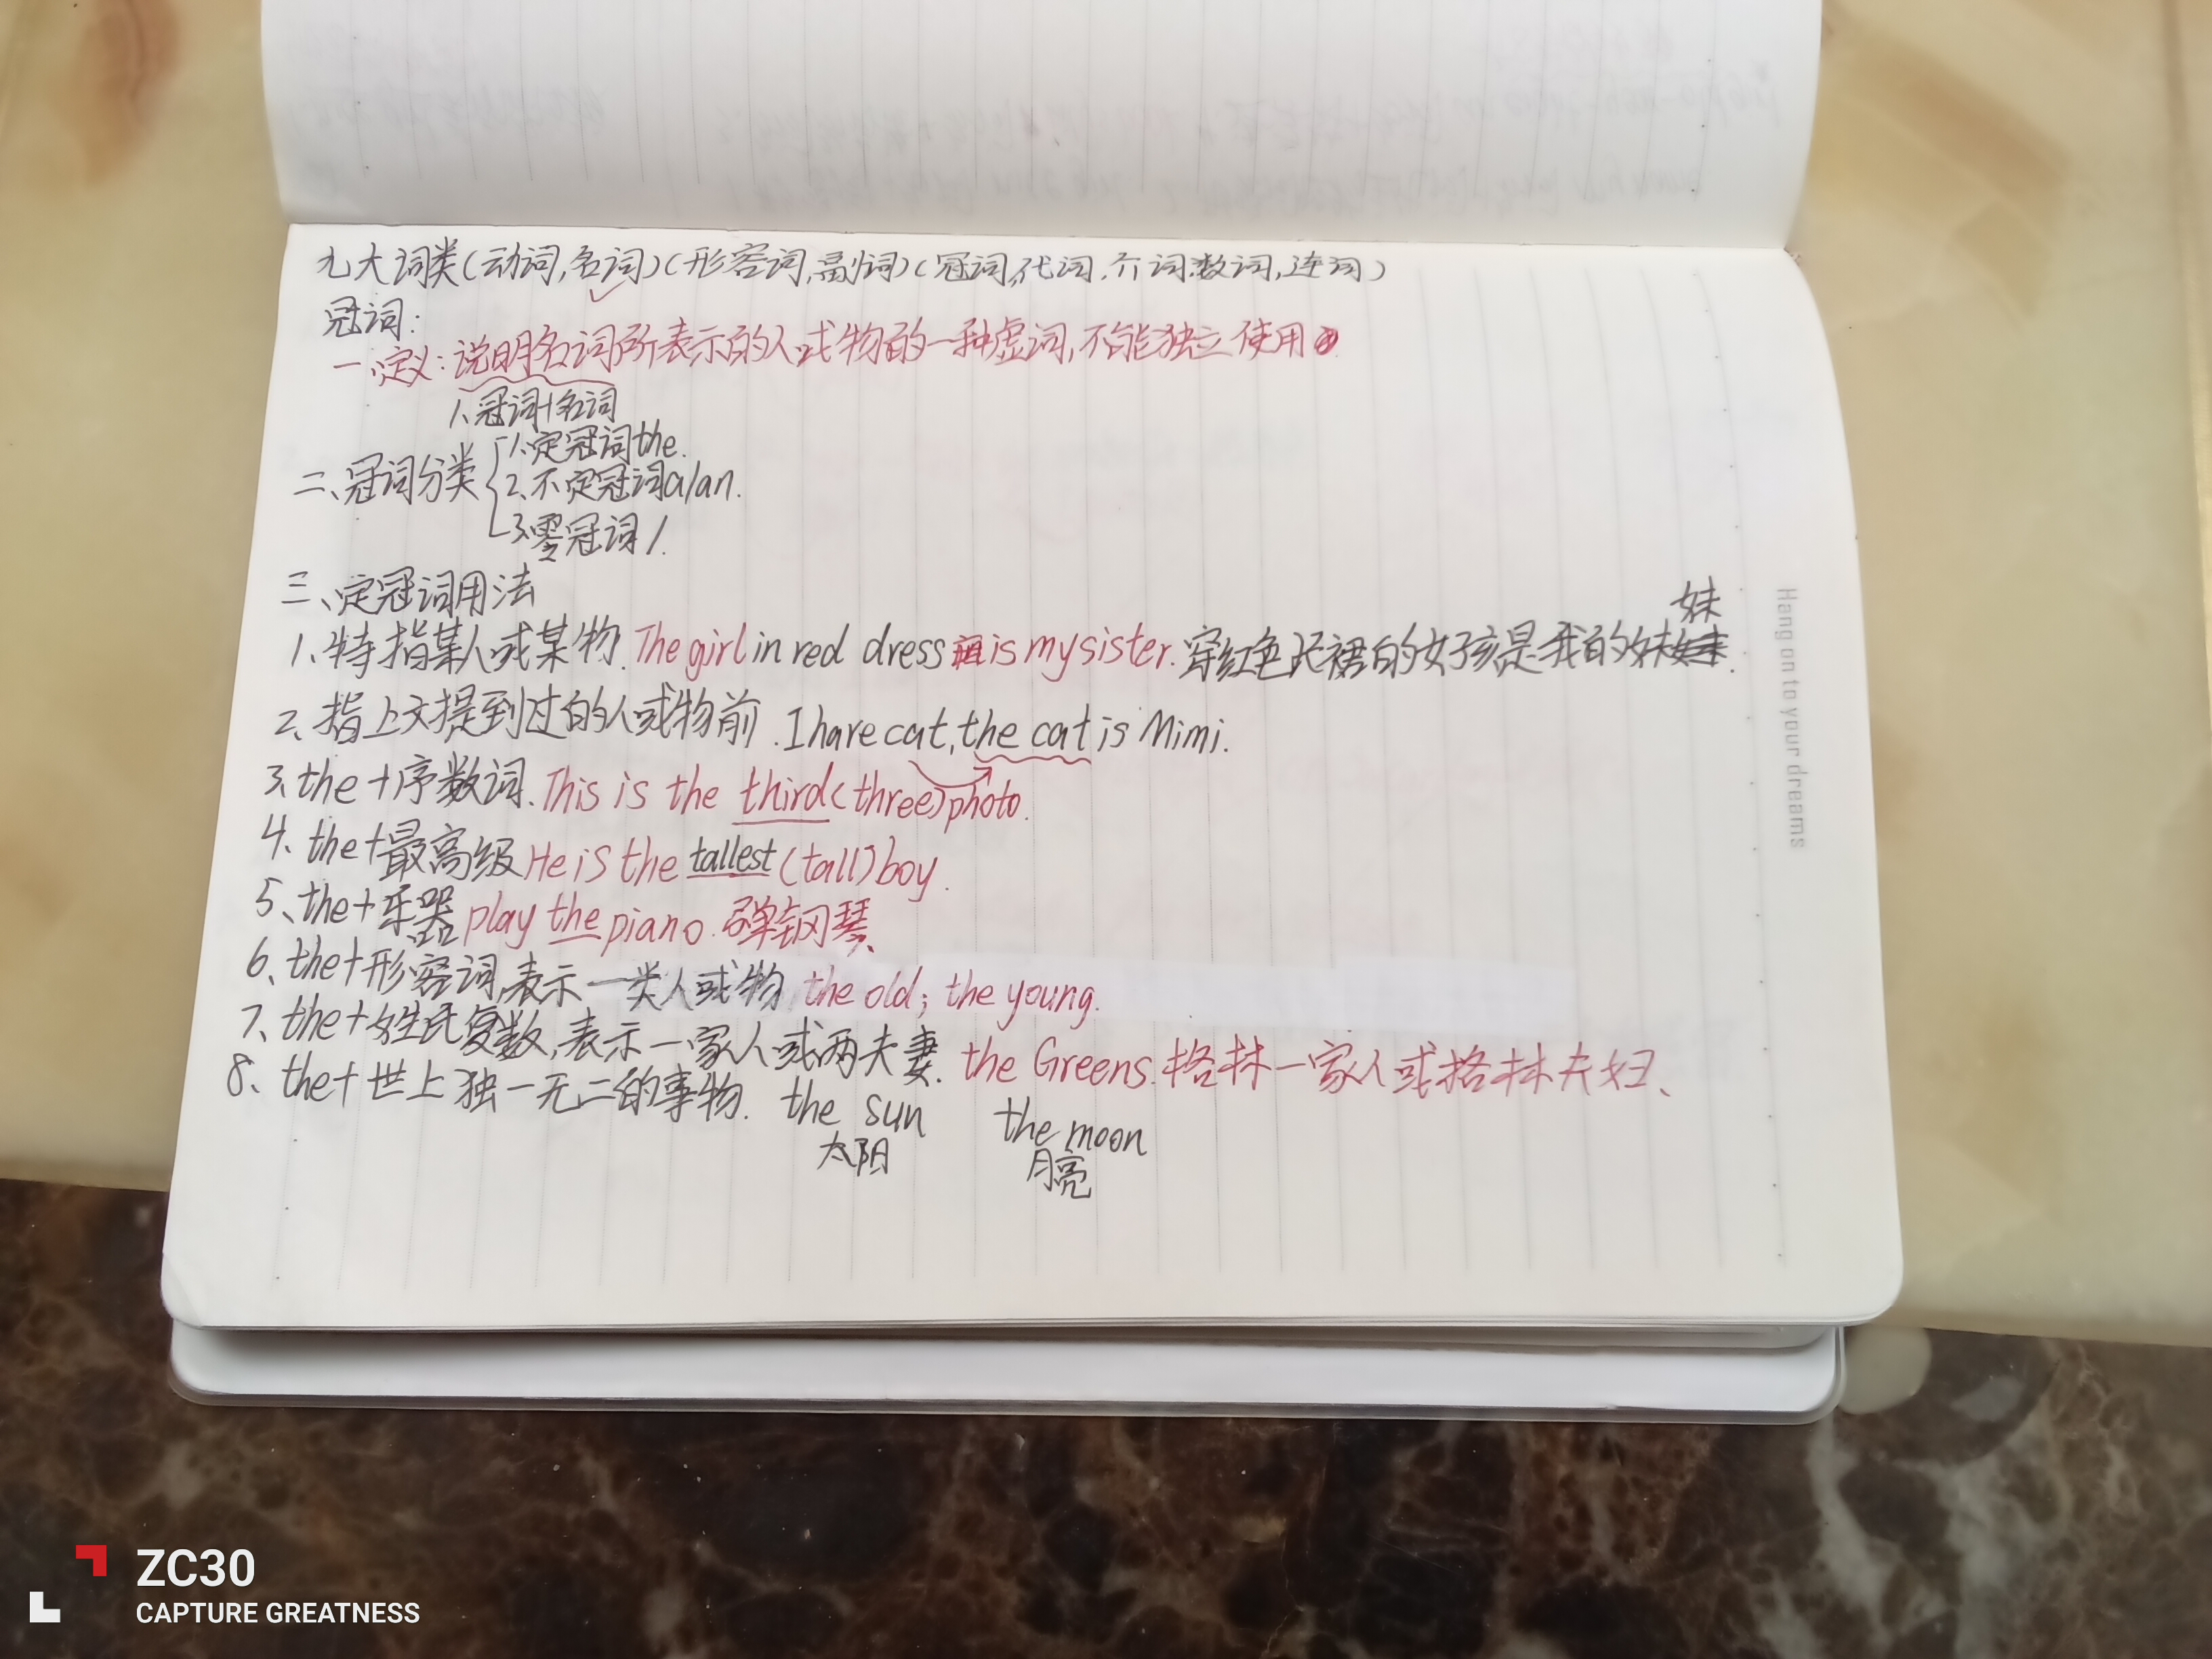 九大词类(动词,名词)(形容词,副词)(冠词,代词.介词.数词,连词)
冠词:
一、定义:说明名词所表示的人或物的一种虚词,不能独立使用
1、冠词+名词
二、冠词分类
1、定冠词the.
2、不定冠词a/an.
3、零冠词/.
三、定冠词用法
妹
1、特指某人或某物.The girl in red dress is my sister.穿红色长裙的女孩是我的妹.
2、指上文提到过的人或物前.I have cat,the cat is Mimi.
3、the+序数词.This is the third(three)photo.
4、the+最高级He is the tallest(tall)boy.
5、the+乐器play the piano.弹钢琴、
6、the+形容词,表示一类人或物,the old; the young.
7、the+姓氏复数,表示一家人或两夫妻.the Greens.格林一家人或格林夫妇、
8、the+世上独一无二的事物. the sun the moon
太阳 月亮
Hang on to your dreams
ZC30
CAPTURE GREATNESS